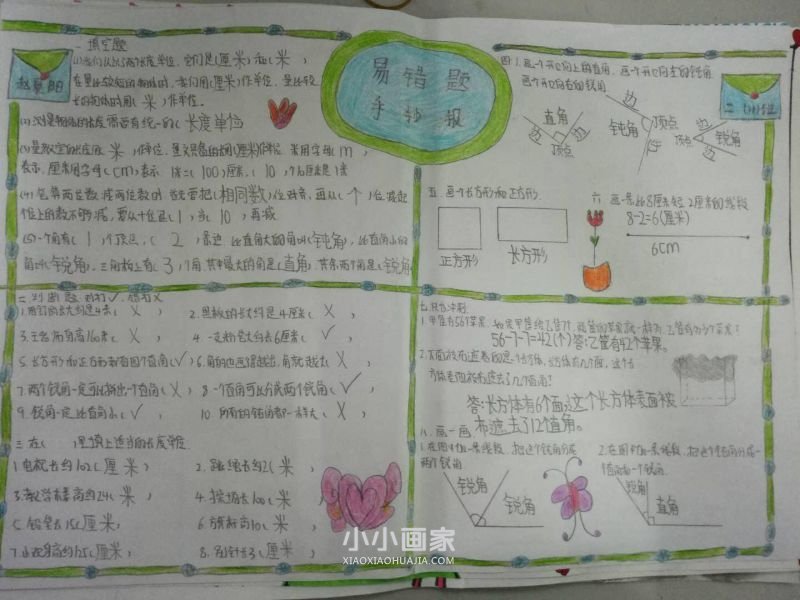 易错题
手抄报
赵夏阳
一 填空题
(1)我们认识的长度单位,它们是(厘米)和(米)
在量比较短的物体时,我们用(厘米)作单位,量比较
长的物体时用(米)作单位。
(2)测量物体的长度需要有统一的(长度单位)
(3)量教室的长度用(米)作单位,量文具盒的长用(厘米)作单位 米用字母(m)
表示,厘米用字母(cm)表示 1米=(100)厘米,(10)个10厘米是1米
(4)笔算两位数减两位数时,首先要把(相同数)位对齐,再从(个)位减起
个位上的数不够减,要从十位退(1)当(10)再减
(5)一个角有(1)个顶点,(2)条边 比直角大的角叫(钝角),比直角小的
角叫(锐角)。三角板上有(3)个角 其中最大的角是(直角),其余两个角是(锐角)
二 判断题 对打✓,错打X
2.黑板的长大约是4厘米(X)
3.王老师身高160米(X)
4.一支粉笔大约长6厘米(✓)
5.长方形和正方形都有四个直角(✓)
6.角的边画得越长,角就越大(X)
7.两个锐角一定可以拼出一个直角(X)
8.一个直角可以分成两个锐角(✓)
9.锐角一定比直角小(✓)
10.所有的钝角都一样大(X)
三 在( )里填上适当的长度单位
1.电视长约102(厘米)
2.跳绳长约2(米)
3.教学楼高约24(米)
4.操场长100(米)
铅笔长15(厘米)
6.旗杆高10(米)
8.别针长3(厘米)
四 1.画一个开口向上的直角,画一个开口向左的钝角
画一个开口向右的锐角
边
直角
边
顶点
边
钝角
顶点
边
边
顶点
锐角
边
二(1)班
五 画一个长方形和正方形
正方形
长方形
六 画一条比8厘米短2厘米的线段
8-2=6(厘米)
6cm
56-7-7=42(个)答:乙筐有42个苹果。
答:长方体有6个面,这个长方体表面被
布遮去了12直角。
八 画一画
1.在图中加一条线段,把这个钝角分成
两个锐角
锐角
锐角
2.在图中加一条线段,把这个钝角分成一
个直角和一个锐角
锐角
直角
小小画家
XIAOXIAOHUAJIA.COM